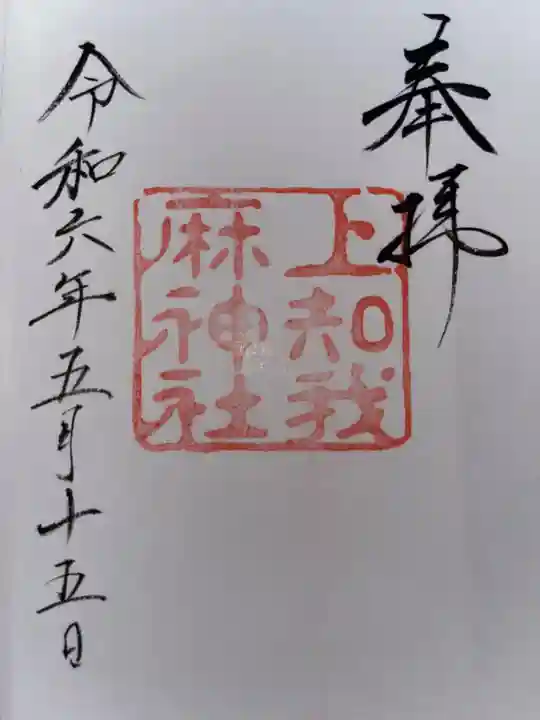 奉拝
上知我
麻神社
令和六年五月十五日